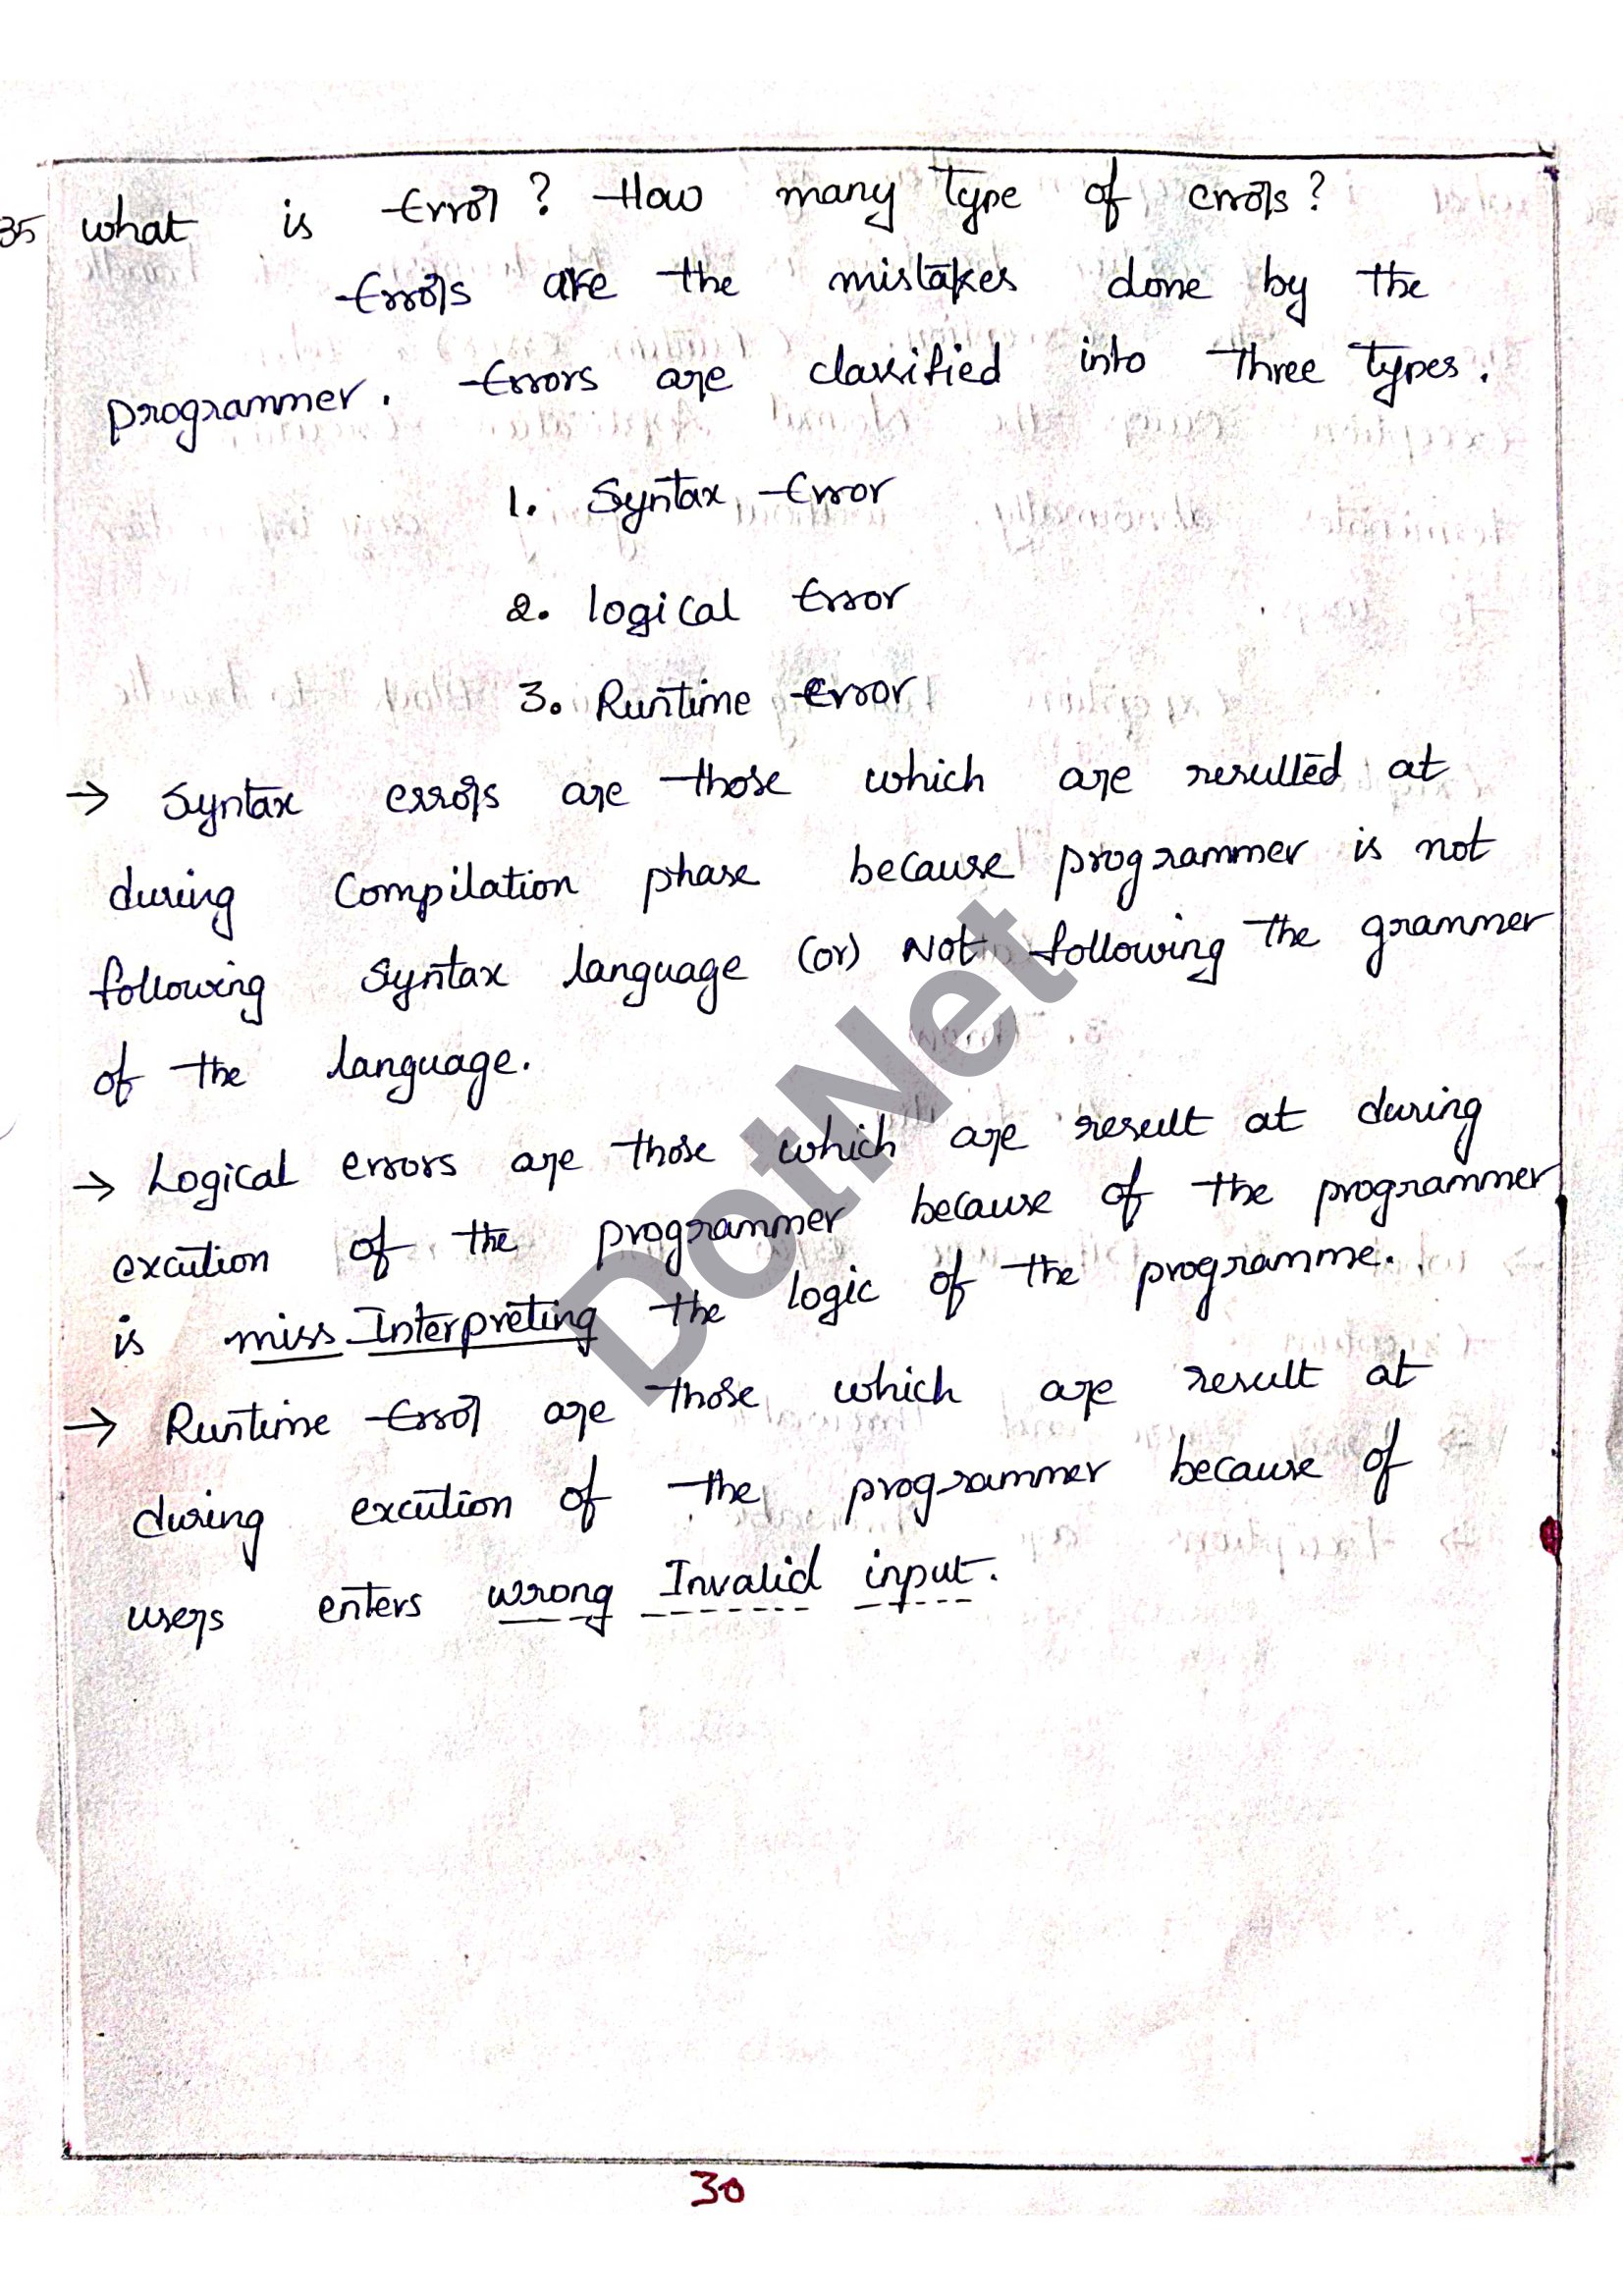 35 what is Error? How many type of errors?
Errors are the mistakes done by the
programmer. Errors are classified into three types.
1. Syntax Error
2. logical Error
3. Runtime error
→ Syntax errors are those which are resulted at
during Compilation phase because programmer is not
following Syntax language (or) Not following the grammer
of the language.
→ Logical errors are those which are result at during
excution of the programmer because of the programmer
is miss Interpreting the logic of the programme.
→ Runtime Error are those which are result at
during excution of the programmer because of
users enters wrong Invalid input.
DotNet
30